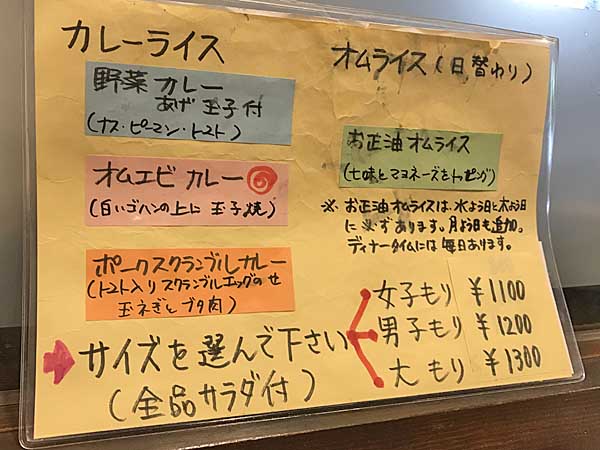 カレーライス
野菜カレー
あげ玉子付
(ナス・ピーマン・トマト)
オムエビカレー
(白いゴハンの上に玉子焼)
ポークスクランブルカレー
(トマト入りスクランブルエッグのせ
玉ネギとブタ肉)
サイズを選んで下さい
(全品サラダ付)
オムライス(日替わり)
お正油オムライス
(七味とマヨネーズをトッピング)
※お正油オムライスは、水よう日と木よう日
に必ずあります。月よう日も追加。
ディナータイムには毎日あります。
女子もり ¥1100
男子もり ¥1200
大もり ¥1300